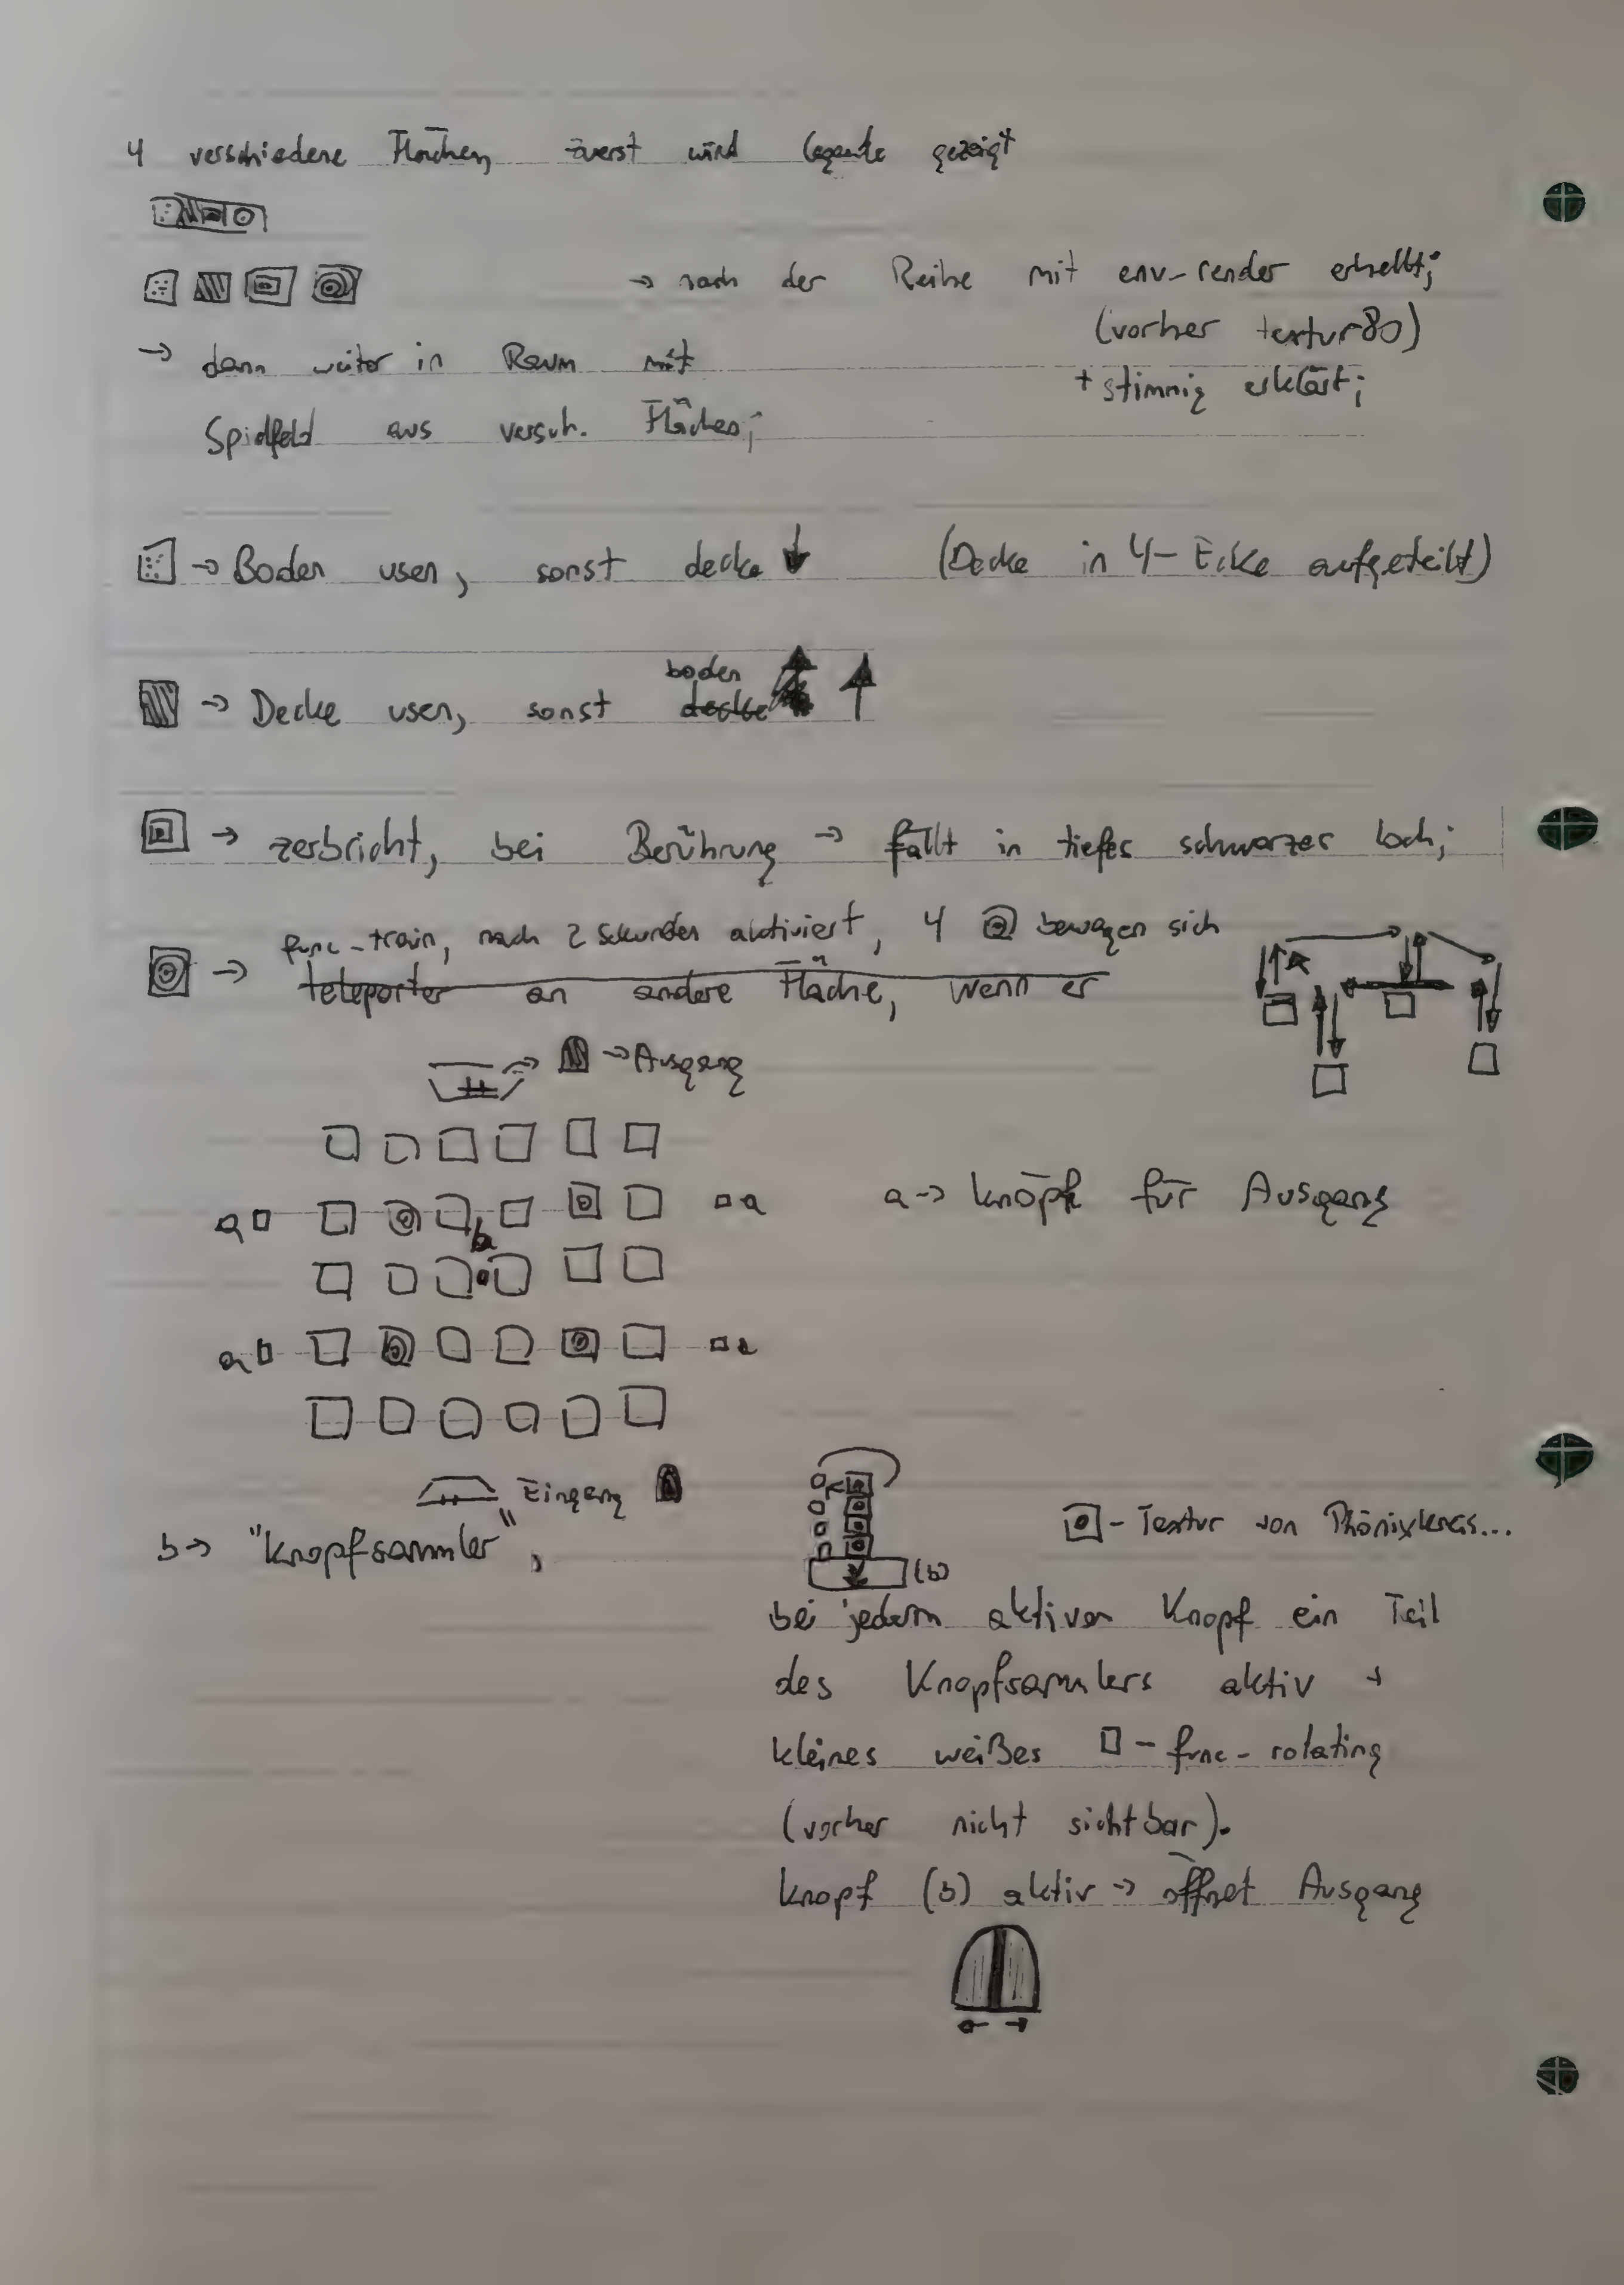 4 verschiedene Flächen, zuerst wird legende gezeigt
→ nach der Reihe mit env-render erhellt;
(vorher textur 80)
+ stimmig erklärt;
→ dann weiter in Raum mit
Spielfeld aus versch. Flächen;
→ Boden usen, sonst decke ↓ (Decke in 4-Ecke aufgeteilt)
boden
→ Decke usen, sonst decke ↑
→ zerbricht, bei Berührung → fällt in tiefes schwarzes Loch;
func-train, nach 2 Sekunden aktiviert, 4 bewegen sich
→ teleporter an andere Fläche, wenn er
→ Ausgang
a a
a → Knöpfe für Ausgang
b
a a
Eingang
b → "Knopfsammler",
(b)
- Textur von Phönixkreis...
bei jedem aktiven Knopf ein Teil
des Knopfsammlers aktiv +
kleines weißes □ - func-rotating
(vorher nicht sichtbar).
Knopf (b) aktiv → öffnet Ausgang